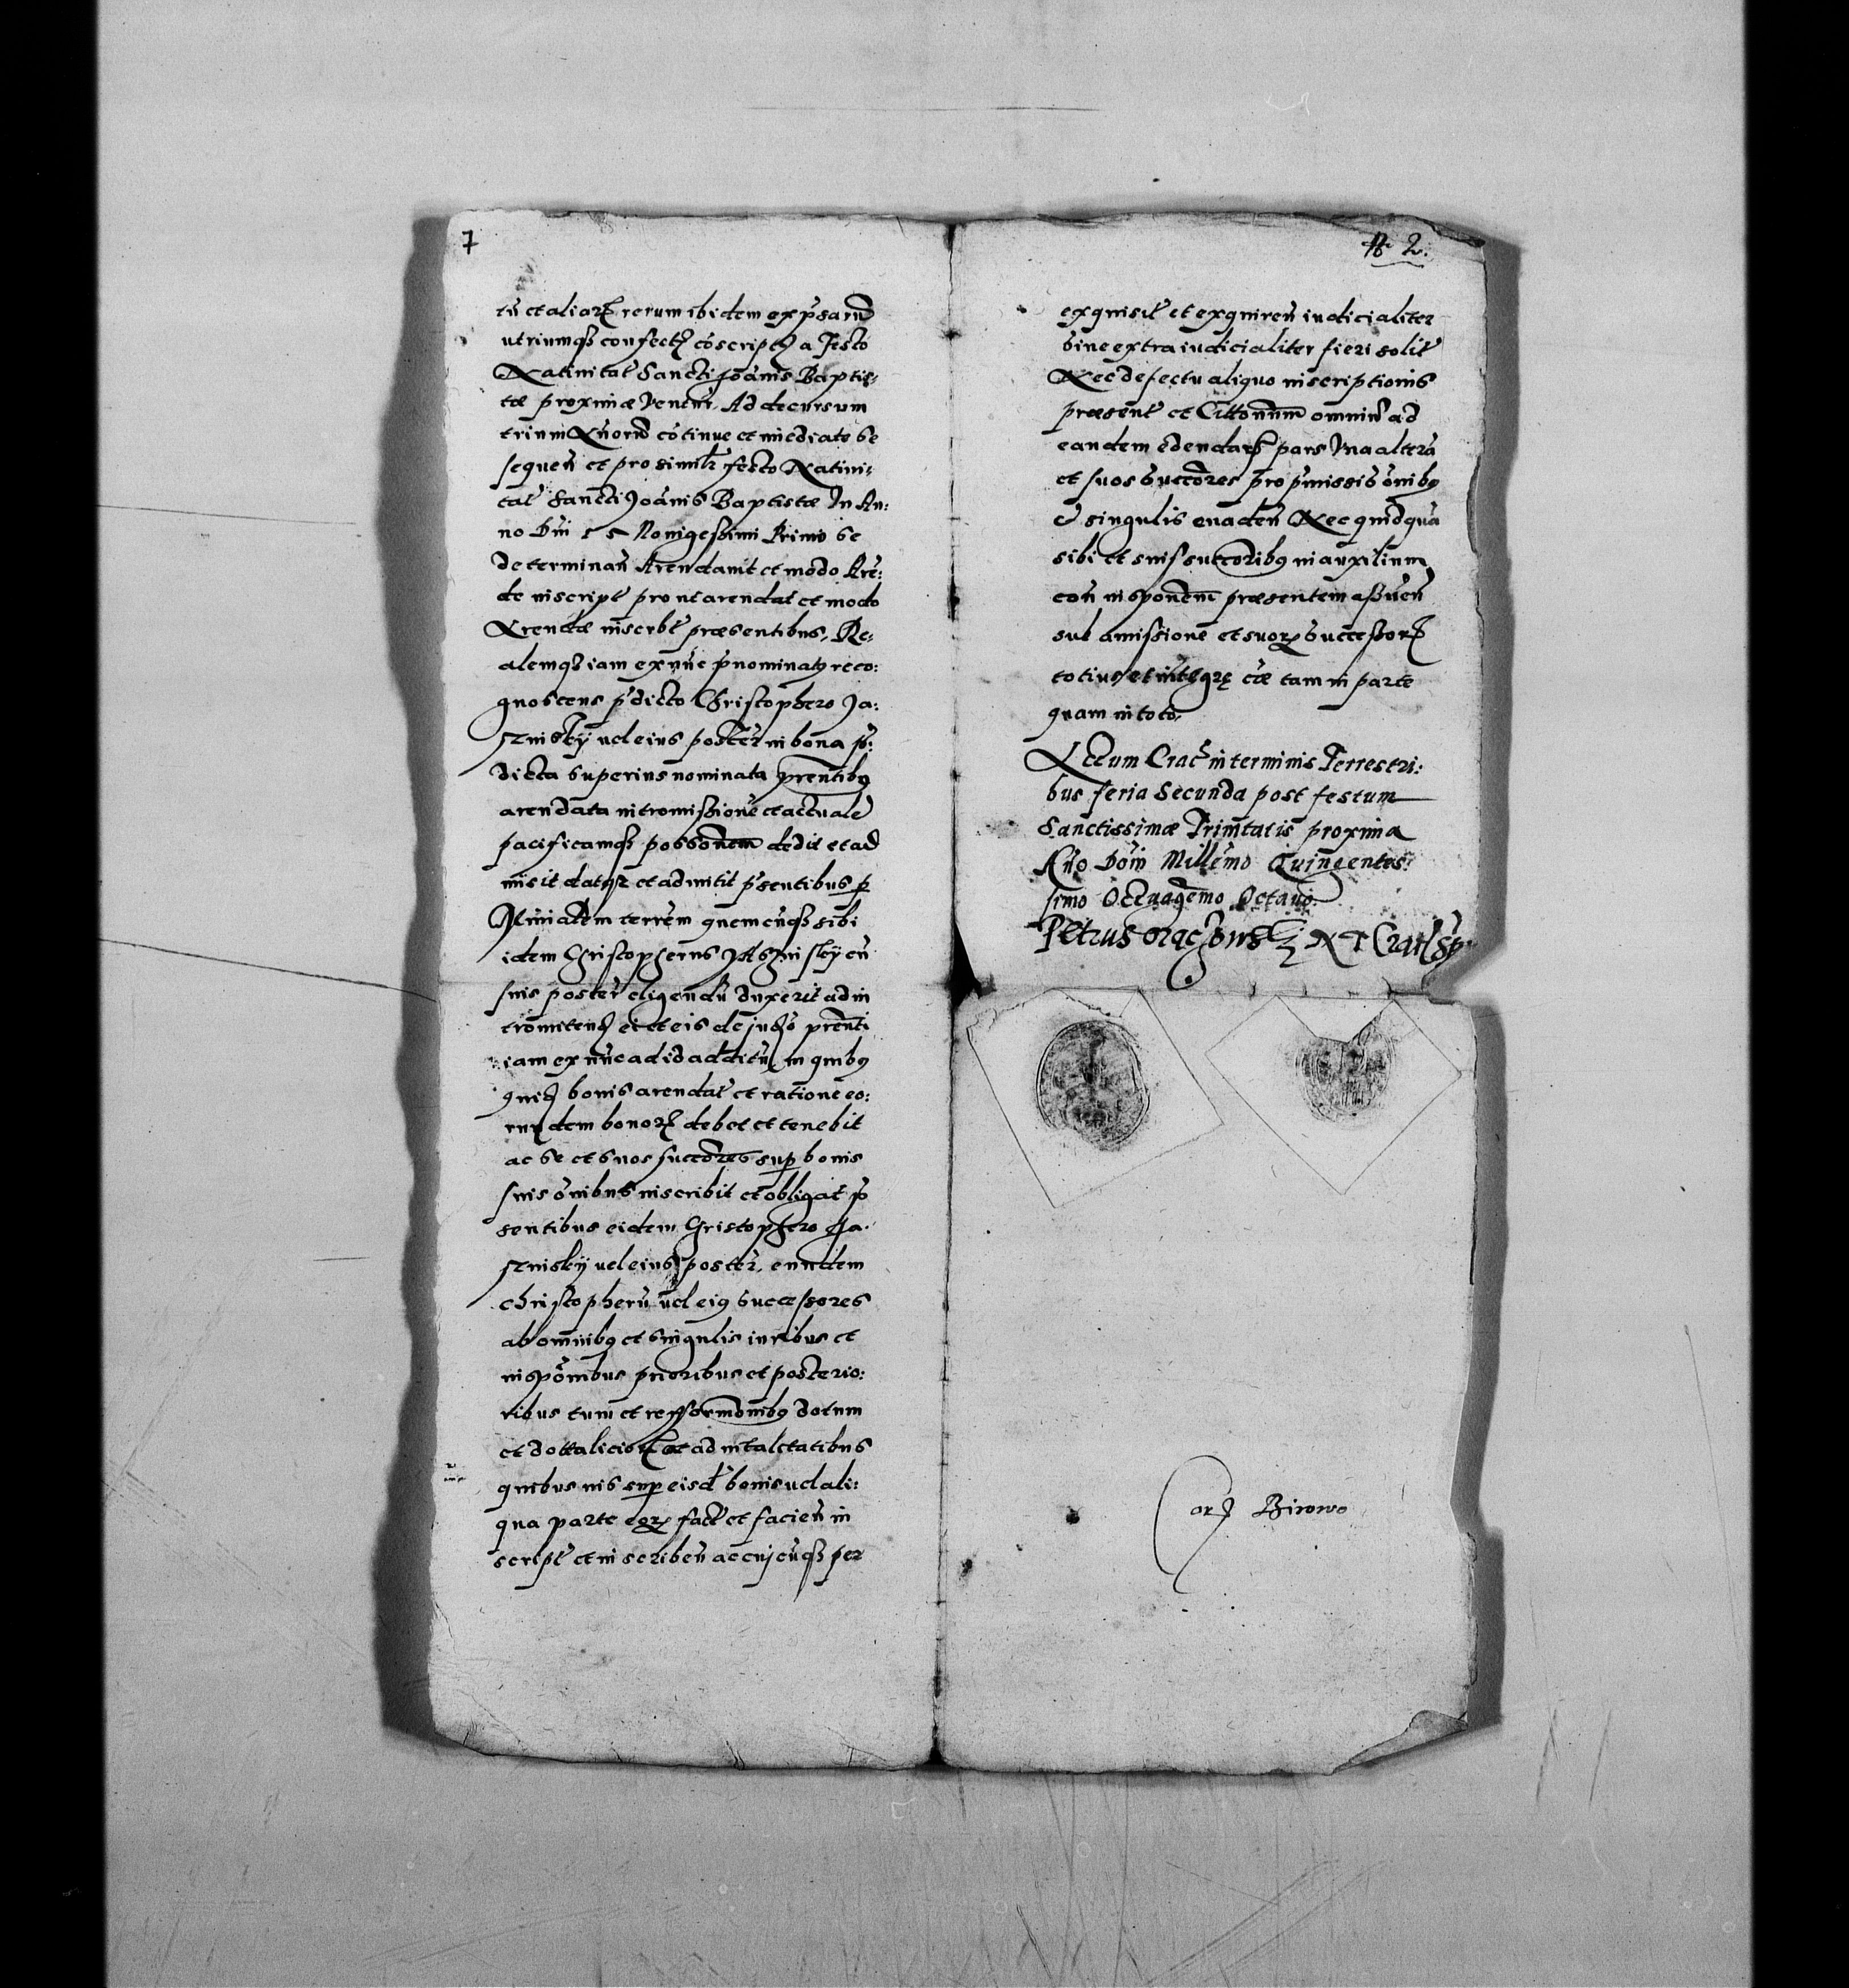 7
tũ et aliarꝝ rerum ibidem exp̃sarũ
utriumqȝ confect ꝯscript a Festo
Natiuitat̃ Sancti Joãnis Baptis:
tæ proximæ Ventur̃. Ad decursum
trium Añorũ cõtinue et imediate se
sequeñ et pro simili festo Natiui:
tat̃ Sancti Joãnis Baptistæ In An:
no Dñi Nonigeßimi Primo se
determinañ Arendauit et modo Arẽ:
de inscript̃ prout arendat et modo
Arendæ inscribt̃ præsentibus, Re:
alemqȝ iam ex nũc p̃nominatꝰ reco:
gnoscens p̃dicto Christophero Ja:
sznisky uel eius poster̃ in bona p̃:
dicta superius nominata p̃rentibꝰ
arendata intromißionẽ et actualẽ
pacificamqȝ poss̃onem dedit et ad
misit datqȝ et admitit p̃sentibus ꝑ
Ministem terrem quemcũqȝ sibi
idem Christopherus Jasznisky cũ
suis poster̃ eligendũ duxerit ad in
tromitend ei et eis de jurẽ p̃renti
iam ex nũc ad id additũ, in quibꝰ
quid bonis arendat̃ et ratione eo:
rundem bonorꝝ debet et tenebit
ac se et suos succ̃ores suꝑ bonis
suis õnibus inscribit et obligat p̃
sentibus eidem Christophero Ja:
sznisky uel eius poster̃. eundem
Christopherũ uel eiꝰ successores
ab omnibꝰ et singulis iuribus et
insp̃onibus prioribus et posterio:
ribus tum et reformãonibꝰ dotum
et dottaliciorꝝ et aduitalitatibus
quibusuis suꝑ eisd̃ bonis uel ali:
qua parte eorꝝ fact̃ et facieñ in
script̃ et inscribeñ ac cujcũqȝ per
2.
exquisit̃ et exquireñ iudicialiter
siue extraiudicialiter fieri solit̃
Nec defectu aliquo inscriptionis
præsent̃ et Cittonum omniũ ad
eandem edendarꝝ pars Vna alterã
et suos succ̃ores pro p̃missis õnibꝰ
et singulis euadeñ Nec quidquã
sibi et suis succ̃oribꝰ in auxilium
coñ insp̃onem præsentem aßueñ
sub amißione et suorꝝ successorꝝ
totius et integrę cæ tam in parte
quam in toto.
Actum Crac̃ in terminis Terrestri:
bus feria Secunda post festum
Sanctissimæ Trinitatis proxima
Año Dõni Millẽmo Quingentes:
simo Octuagẽmo Octauo.
Petrus N T Crac̃ sp̃
Birowo